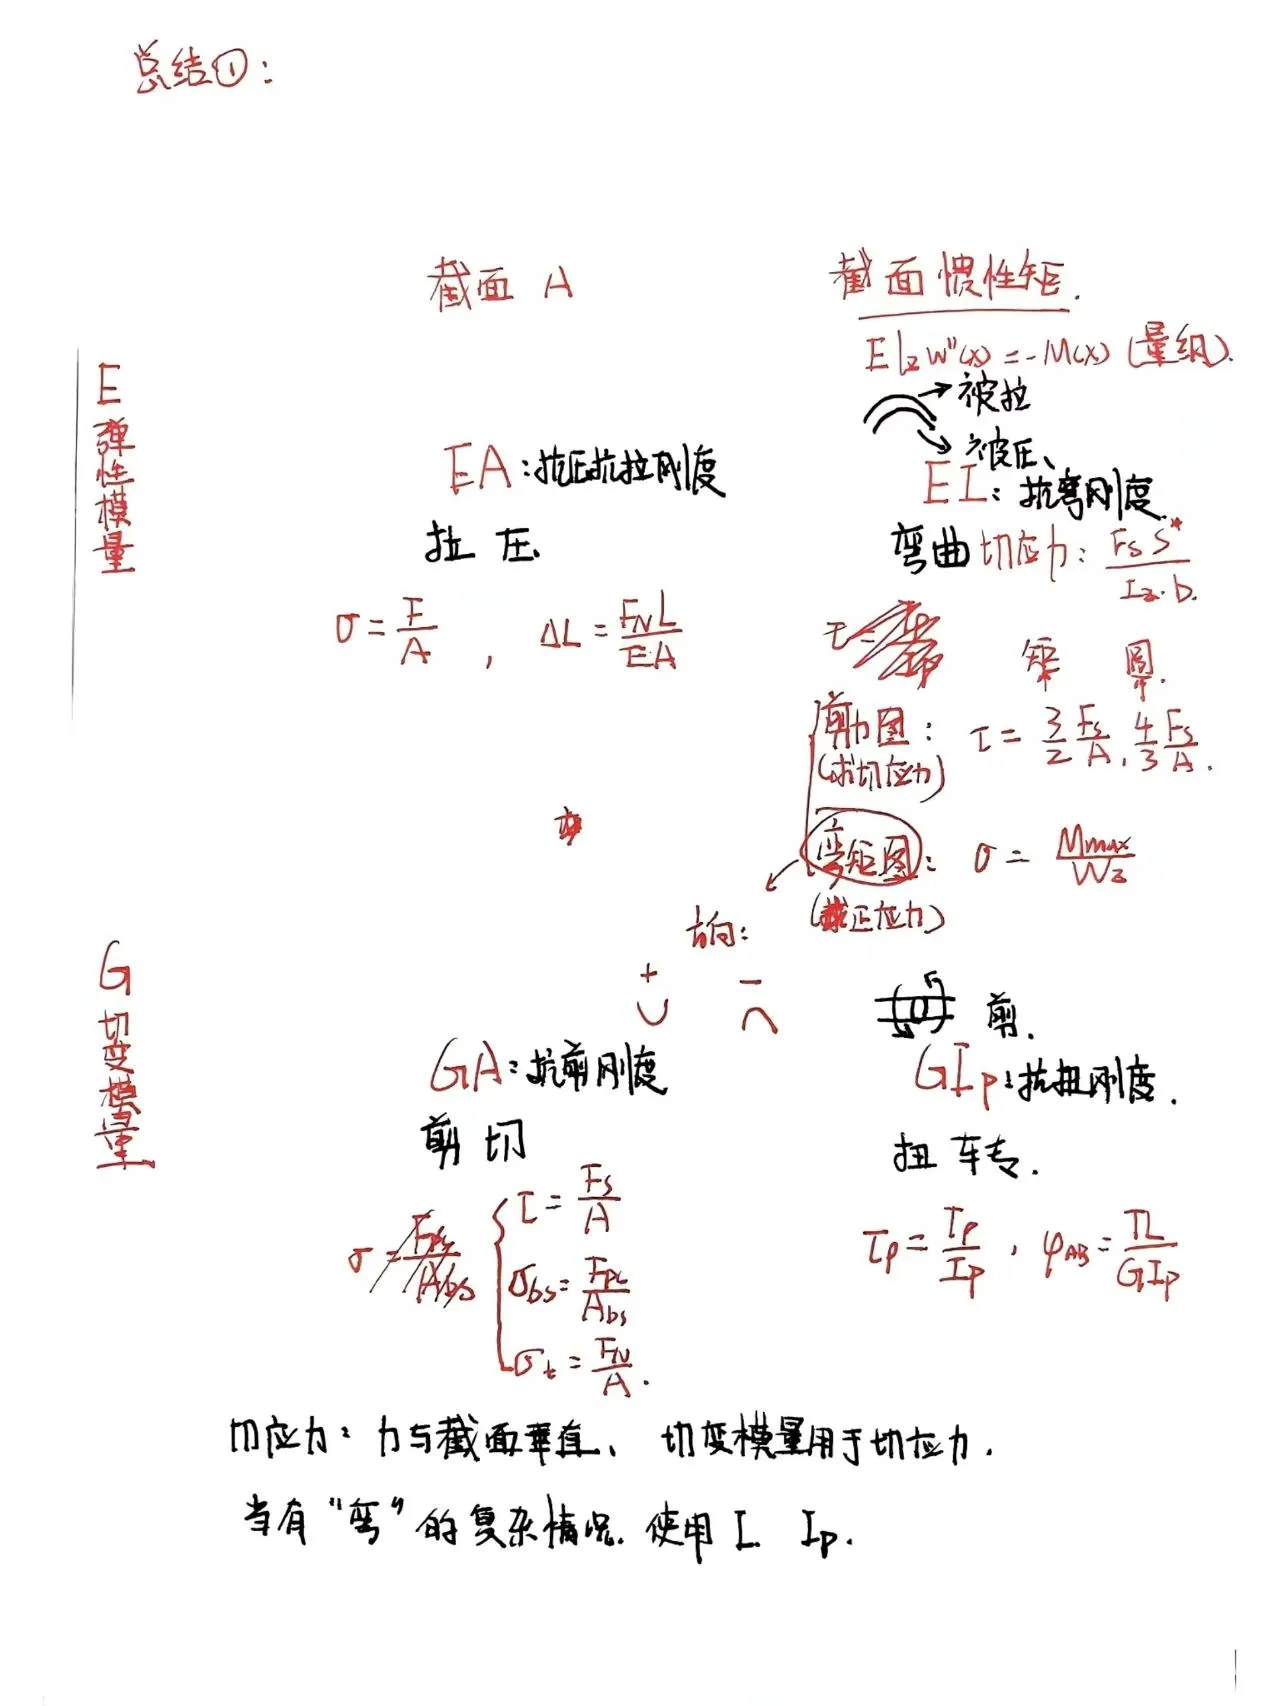 总结①:
截面 A
截面惯性矩.
EIzw''(x)=-M(x) (量纲).
被拉
被压、
E弹性模量
EA:抗压抗拉刚度
EI:抗弯刚度
拉 压
弯曲切应力: FsS*/Iz·b
σ=F/A , ΔL=FNL/EA
矩 圆
剪力图: τ=3/2 Fs/A, 4/3 Fs/A.
(求切应力)
弯矩图: σ=Mmax/Wz
(求正应力)
方向:
+ −
G切变模量
剪.
GA:抗剪刚度
GIp:抗扭刚度.
剪切
扭转.
τ=Fs/A
σbs=Fbs/Abs
σt=FN/A.
τp=Tρ/Ip , φAB=TL/GIp
切应力: 力与截面垂直、 切变模量用于切应力.
当有"弯"的复杂情况. 使用I. Ip.